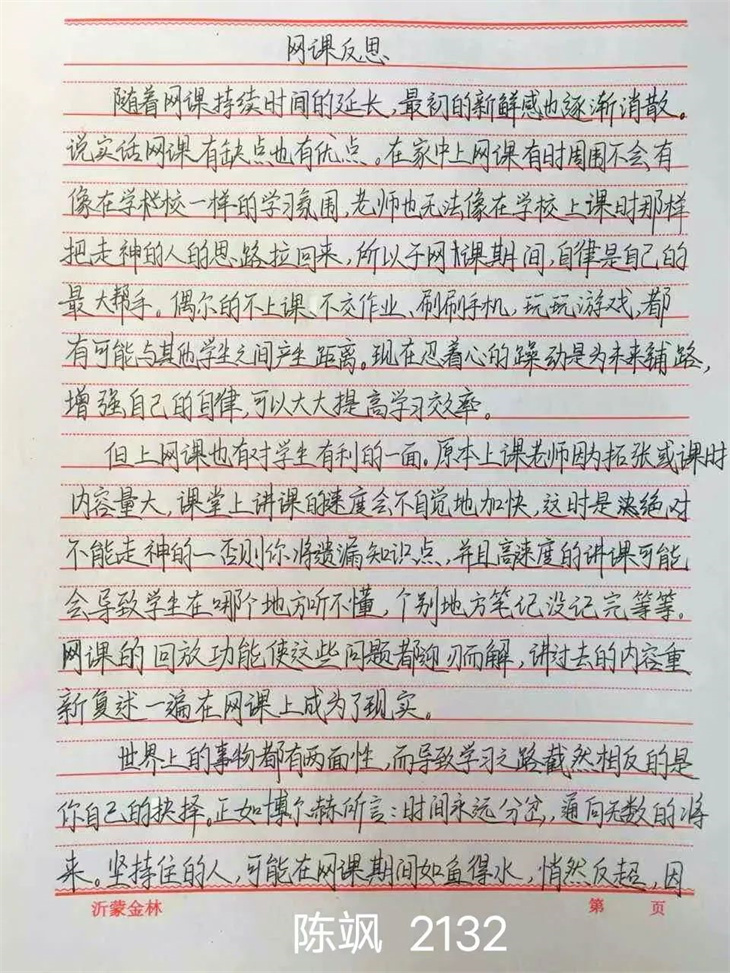 网课反思
随着网课持续时间的延长，最初的新鲜感也逐渐消散。
说实话网课有缺点也有优点。在家中上网课有时周围不会有
像在学校一样的学习氛围，老师也无法像在学校上课时那样
把走神的人的思路拉回来，所以于网课期间，自律是自己的
最大帮手。偶尔的不上课、不交作业、刷刷手机，玩玩游戏，都
有可能与其他学生之间产生距离。现在忍着心的躁动是为未来铺路，
增强自己的自律，可以大大提高学习效率。
但上网课也有对学生有利的一面。原本上课老师因为拓张或课时
内容量大，课堂上讲课的速度会不自觉地加快，这时是绝对
不能走神的—否则你将遗漏知识点，并且高速度的讲课可能
会导致学生在哪个地方听不懂，个别地方笔记没记完等等。
网课的回放功能使这些问题都迎刃而解，讲过去的内容重
新复述一遍在网课上成为了现实。
世界上的事物都有两面性，而导致学习之路截然相反的是
你自己的抉择。正如博尔赫所言：时间永远分岔，通向无数的将
来。坚持住的人，可能在网课期间如鱼得水，悄然反超，因
沂蒙金林 第 页
陈飒 2132